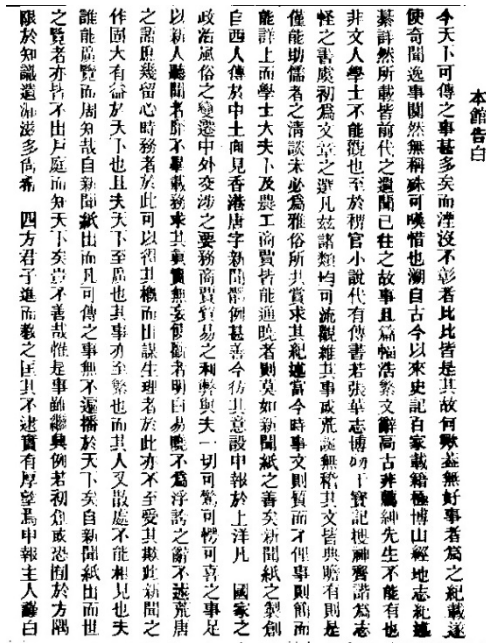 本館告白
今天下可傳之事甚多矣而湮沒不彰者比比皆是其故何歟蓋無好事者為之紀載遂
使奇聞逸事闃然無稱殊可嘆惜也溯自古今以來史記百家載籍極博山經地志紀述
綦詳然所載皆前代之遺聞已往之故事且篇幅浩繁文辭高古非薦紳先生不能有也
非文人學士不能觀也至於稗官小說代有傳書若張華志博物干寶記搜神齊諧為志
怪之書虞初為文章之選凡茲諸類均可流觀維其事或荒誕無稽其文皆典贍有則是
僅能助儒者之清談未必為雅俗所共賞求其紀述當今時事文則質而不俚事則簡而
能詳上而學士大夫下及農工商賈皆能通曉者則莫如新聞紙之善矣新聞紙之製創
自西人傳於中土向見香港唐字新聞體例甚善今仿其意設申報於上洋凡　國家之
政治風俗之變遷中外交涉之要務商賈貿易之利弊與夫一切可驚可愕可喜之事足
以新人聽聞者靡不畢載務求其真實無妄使觀者明白易曉不為浮誇之辭不述荒唐
之語庶幾留心時務者於此可以得其概而出謀生理者於此亦不至受其欺此新聞之
作固大有益於天下也且夫天下至廣也其事亦至繁也而其人又散處不能相見也夫
誰能廣覽而周知哉自新聞紙出而凡可傳之事無不遍播於天下矣自新聞紙出而世
之覽者亦皆不出戶庭而知天下矣豈不善哉惟是事雖繼興例若初創或恐囿於方隅
限於知識遺漏滋多尚希　四方君子進而教之匡其不逮實有厚望焉申報主人謹白